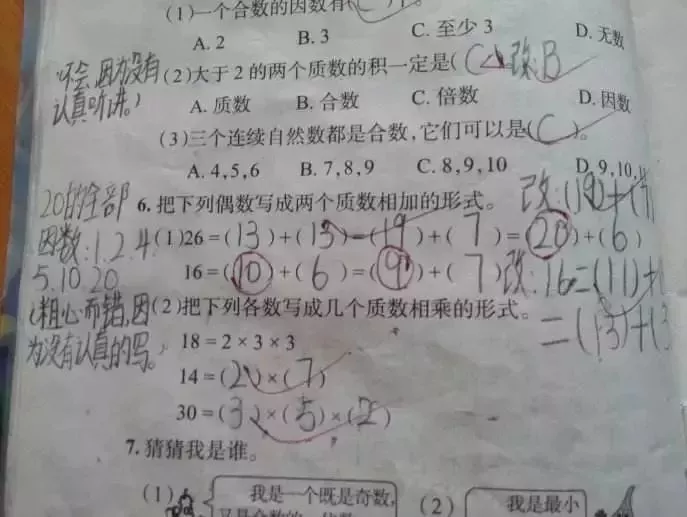 (1)一个合数的因数有( C )
A. 2 B. 3 C. 至少 3 D. 无数
不会,因为没有认真听讲。)
(2)大于 2 的两个质数的积一定是( C 改:B
A. 质数 B. 合数 C. 倍数 D. 因数
(3)三个连续自然数都是合数,它们可以是( C )。
A. 4,5,6 B. 7,8,9 C. 8,9,10 D. 9,10,
20的全部
因数:1.2.4
5.10.20
6. 把下列偶数写成两个质数相加的形式。
改:(19)+(7)
(1)26=(13)+(13)=(19)+(7)=(20)+(6)
16=(10)+(6)=(9)+(7)
改:16=(11)+(
=(13)+(3
(粗心而错,因
为没有认真的写。
(2)把下列各数写成几个质数相乘的形式。
18=2×3×3
14=(2)×(7)
30=(3)×(5)×(2)
7. 猜猜我是谁。
(1) 我是一个既是奇数,
又是合数的一位数
(2) 我是最小